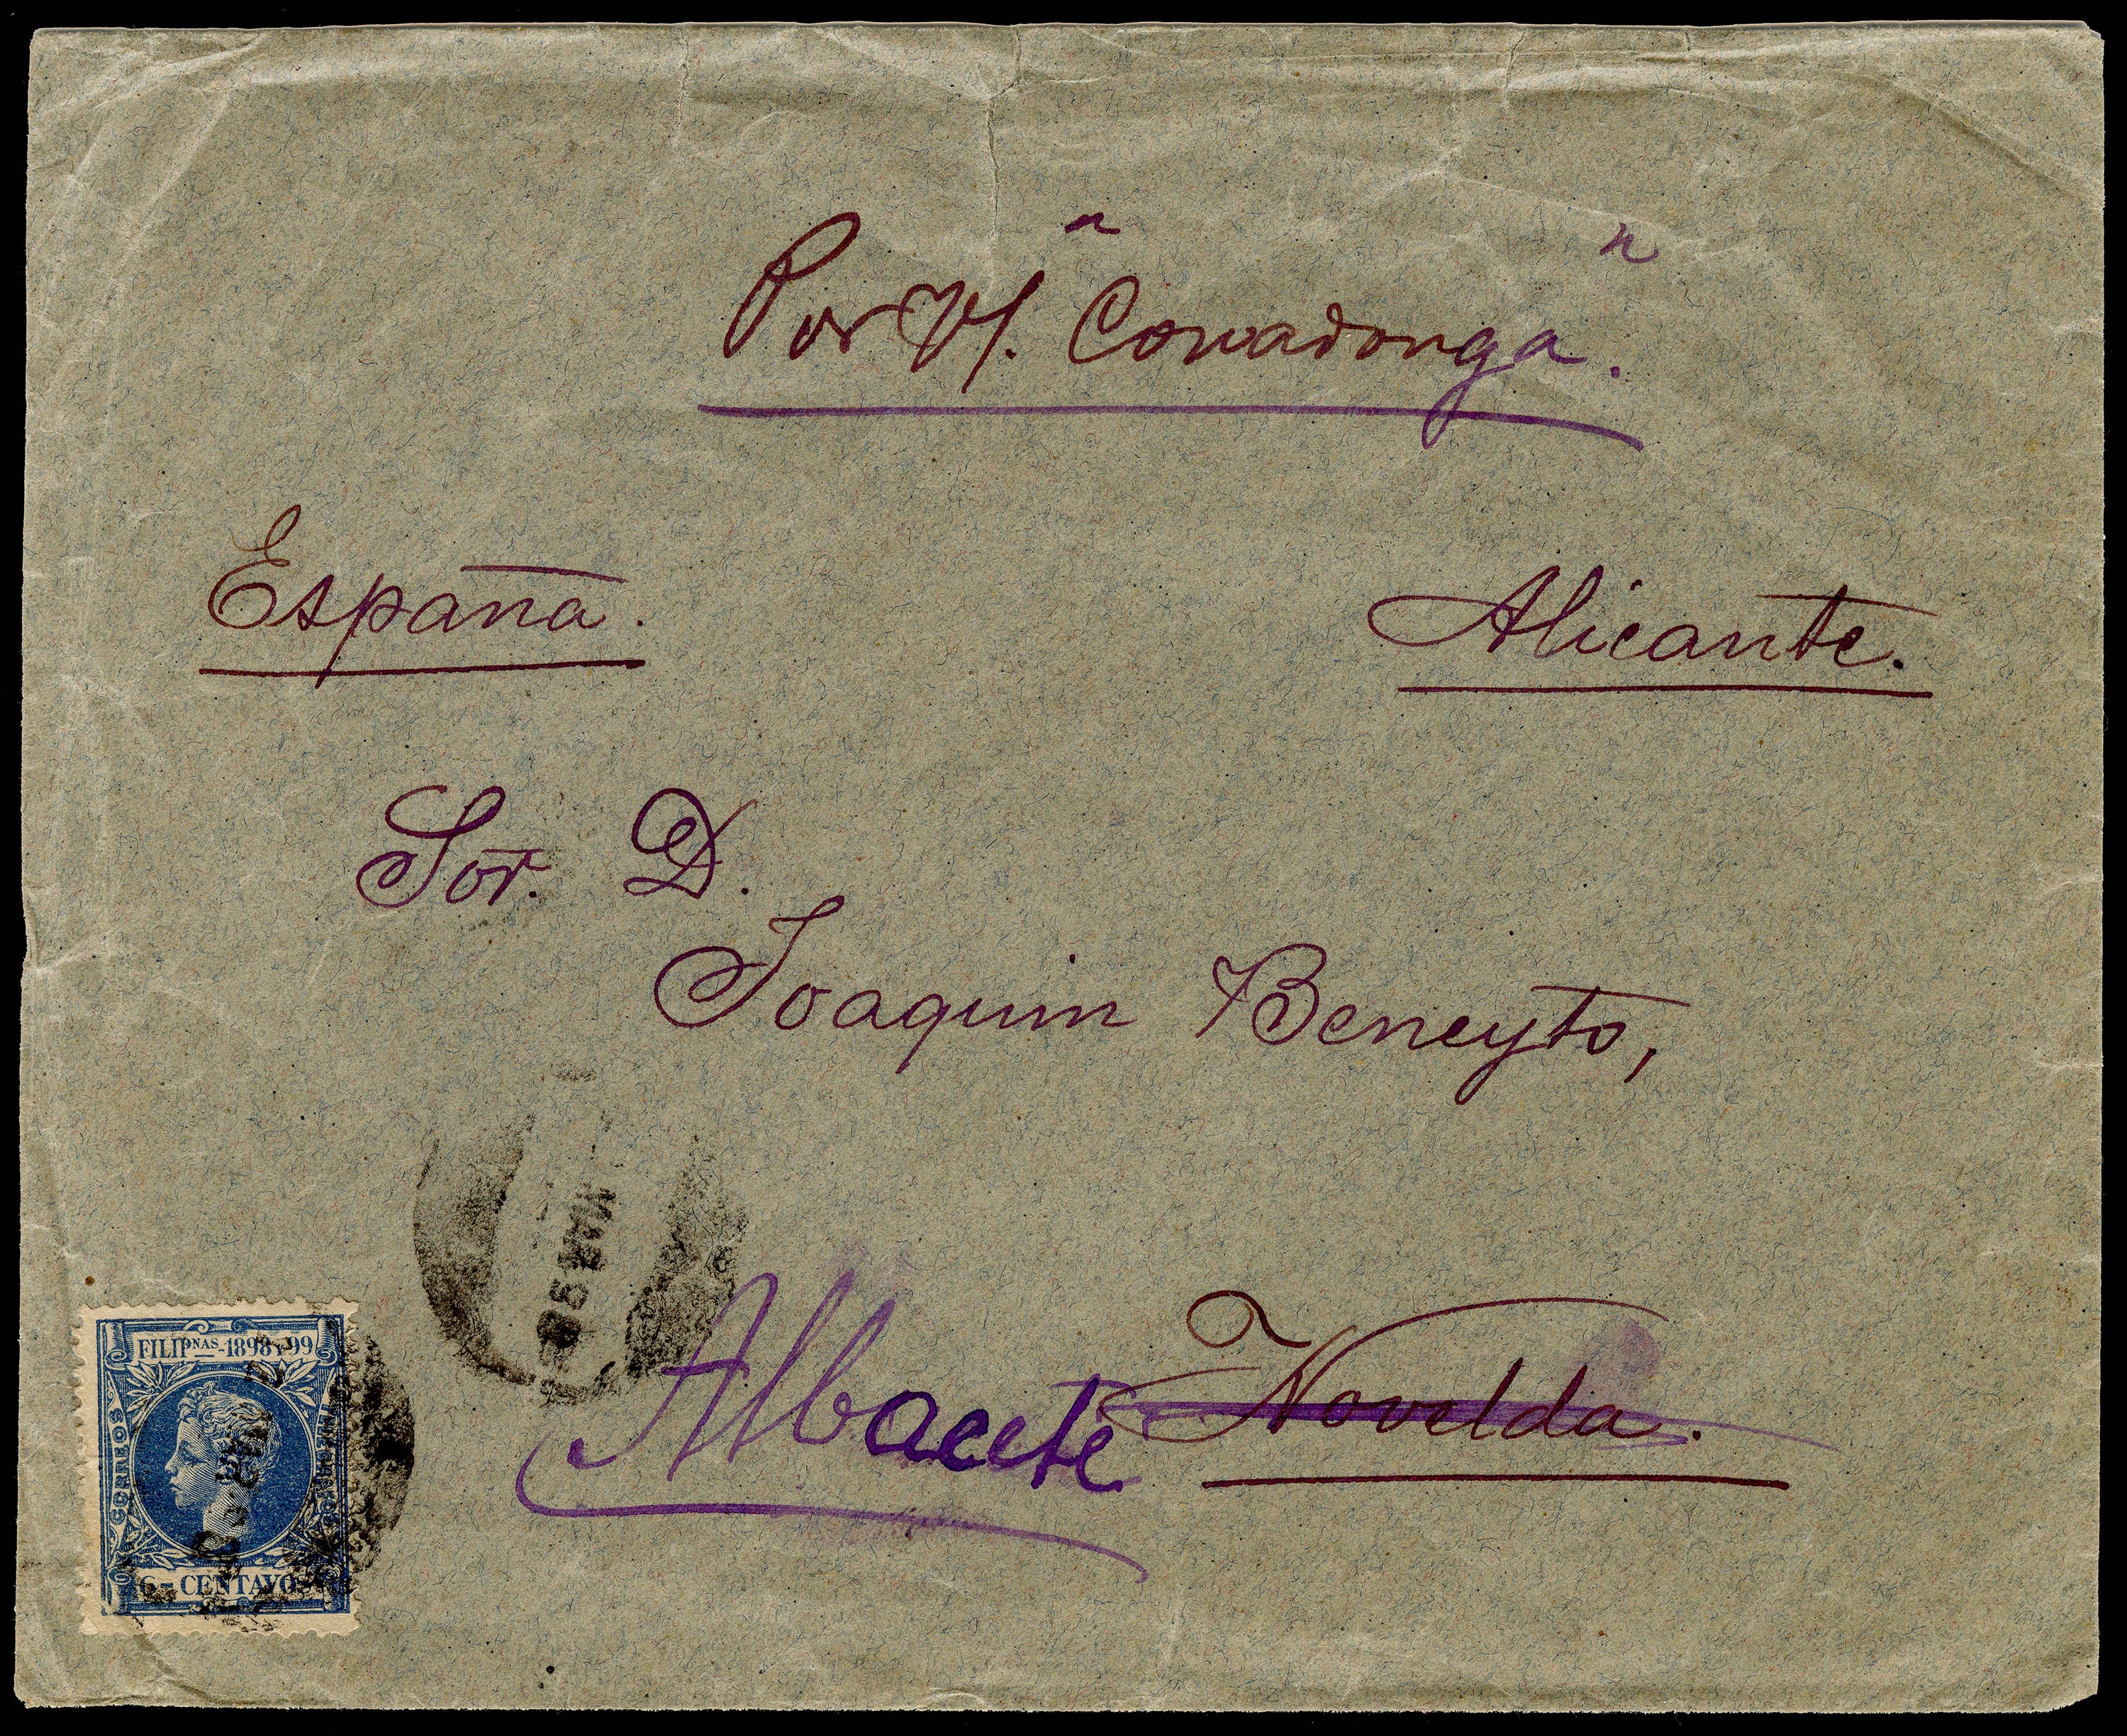 Por V/. "Covadonga".
España. Alicante.
Sor. D.
Joaquin Beneyto,
MAR 98
Albacete Novelda.
FILIPNAS-1898 Y 99
CORREOS
6-CENTAVOS